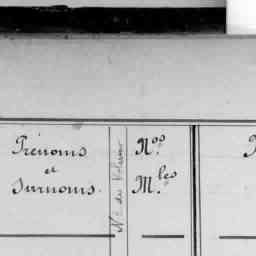 Prénoms
et
Surnoms.
N° du Volume
N.os
M.les